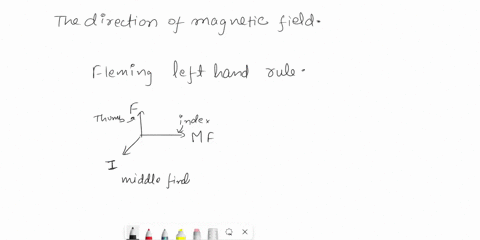 The direction of magnetic field.
Fleming left hand rule.
F
Thumb
index
MF
I
middle find